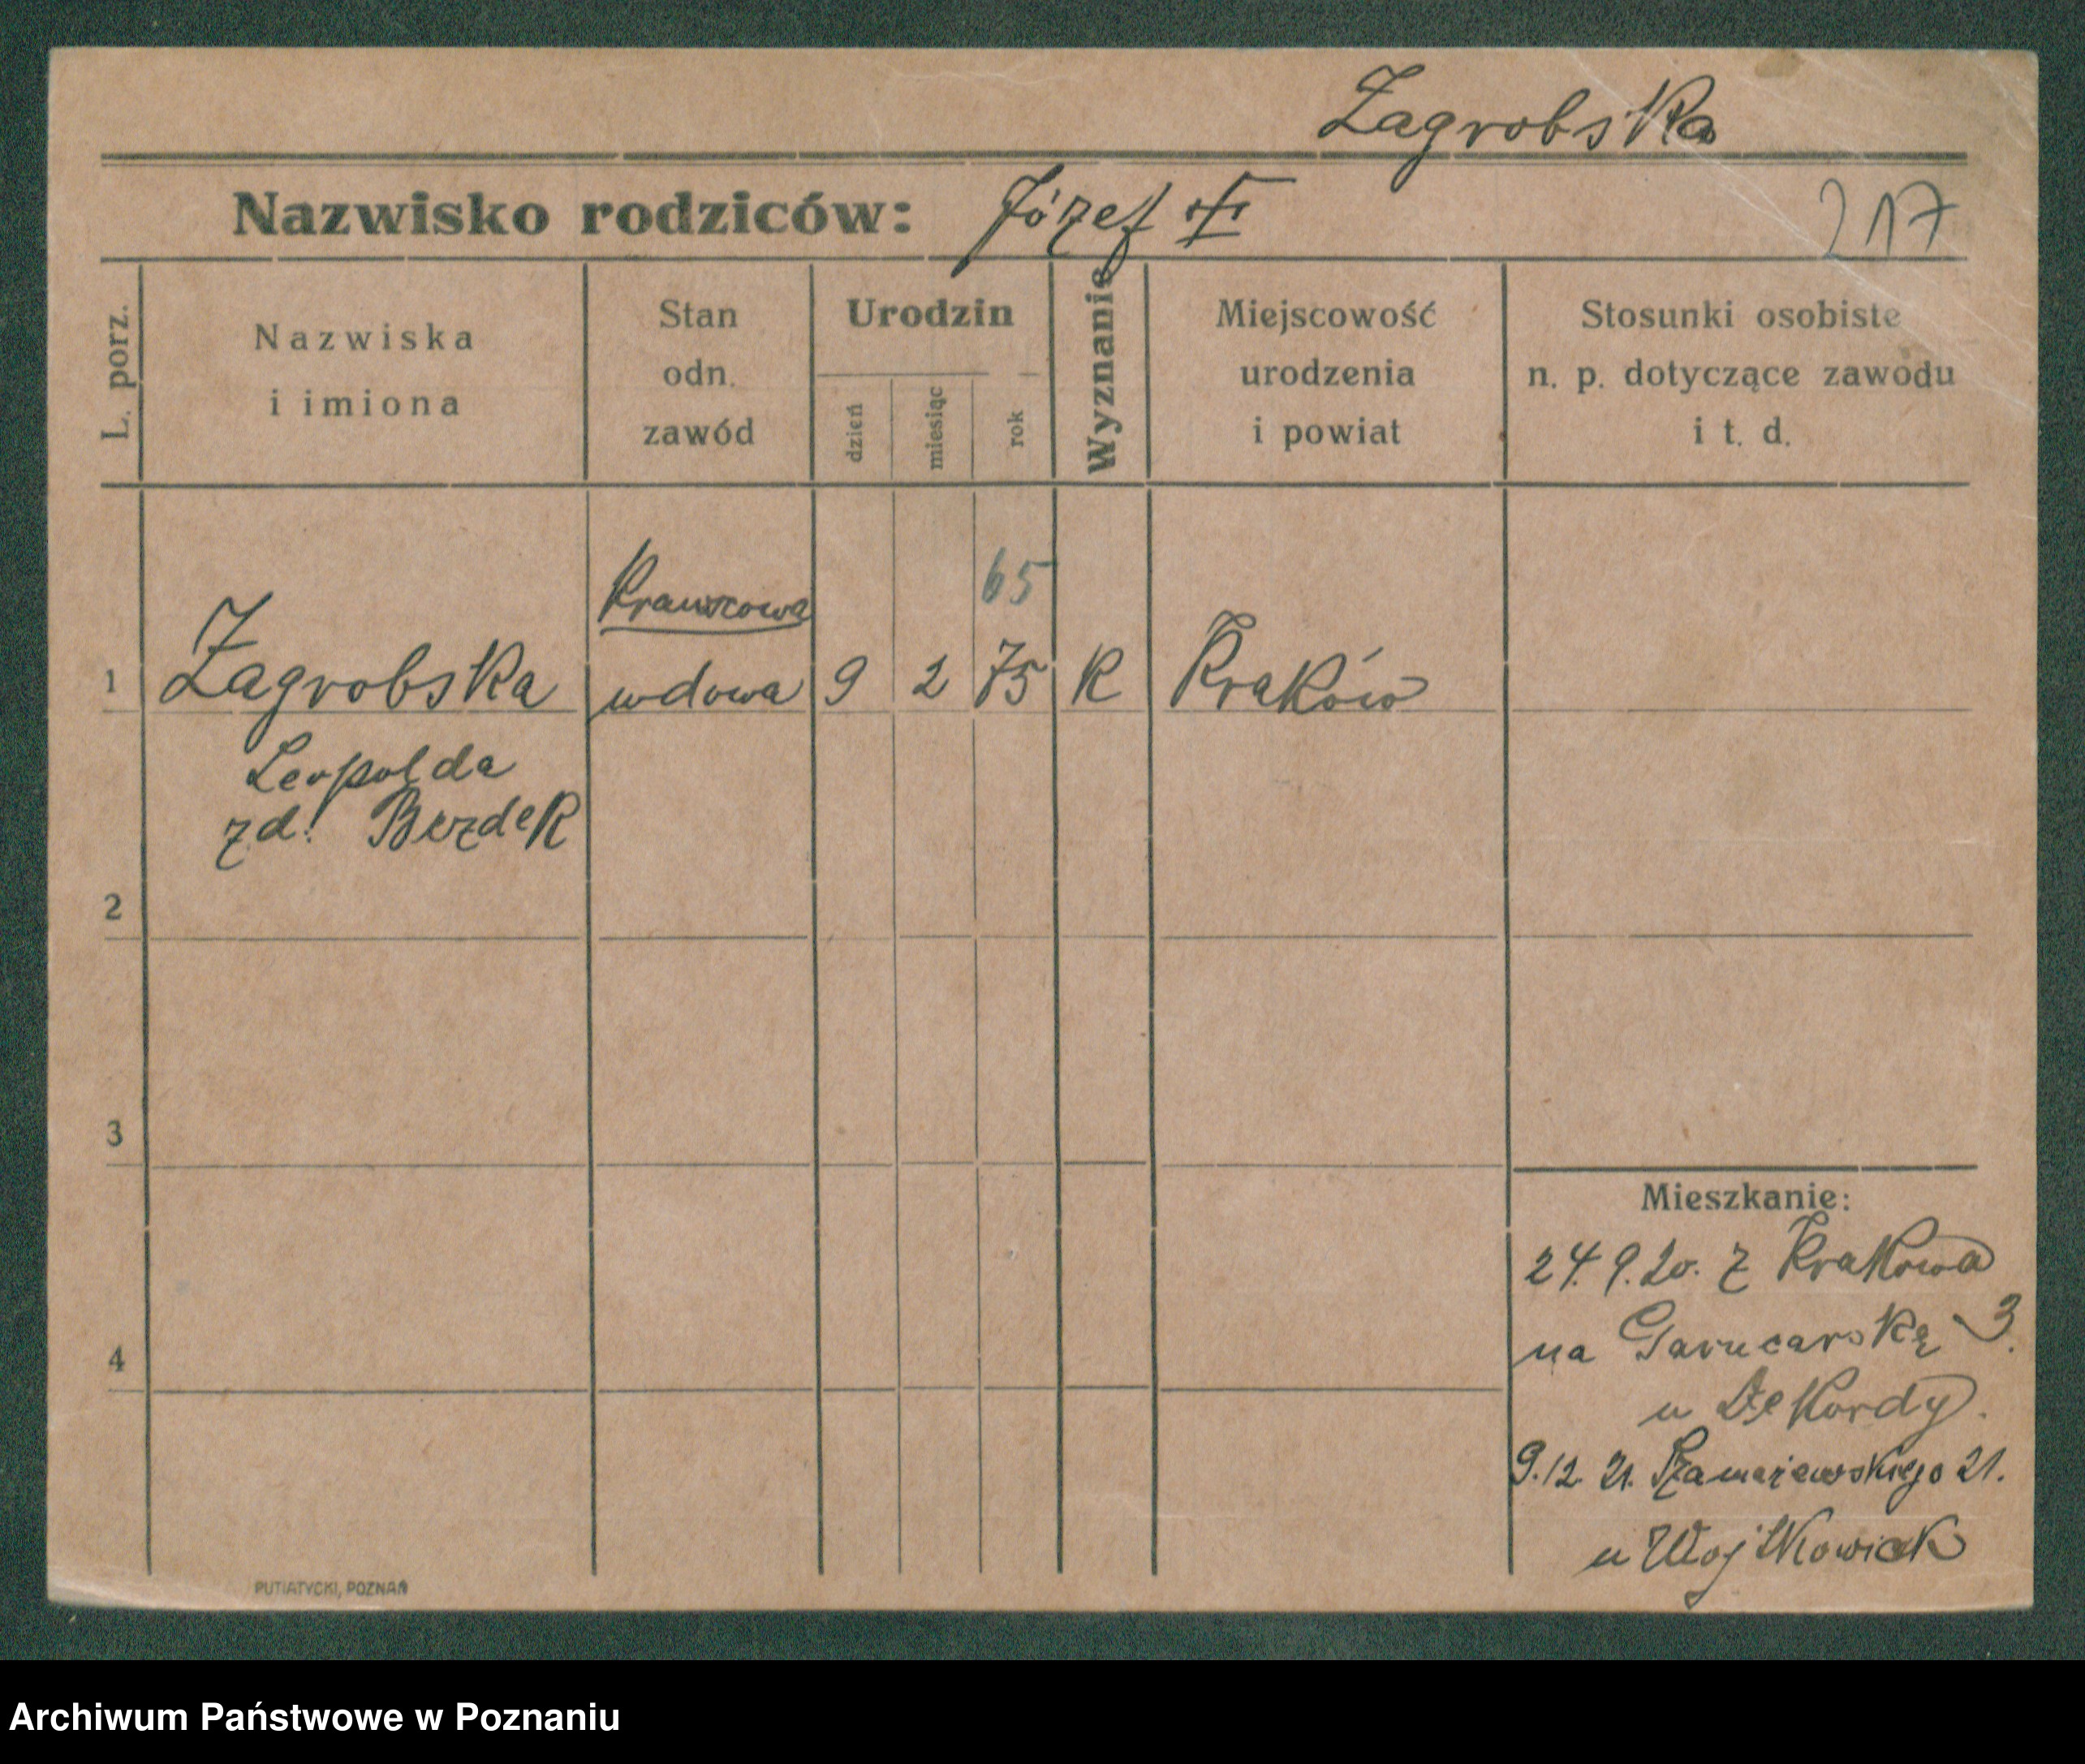 Zagrobska
Nazwisko rodziców: Józef
217
L. porz.
Nazwiska
i imiona
Stan
odn.
zawód
Urodzin
dzień
miesiąc
rok
Wyznanie
Miejscowość
urodzenia
i powiat
Stosunki osobiste
n. p. dotyczące zawodu
i t. d.
Krawcowa
65
1 Zagrobska wdowa 9 2 75 K Kraków
Leopolda
zd. Bezdek
2
3
Mieszkanie:
24.9.20. z Krakowa
na Garncarską 3.
u Dekordy.
4
9.12.21. Szamarzewskiego 21.
u Wojtkowiak
PUTIATYCKI, POZNAŃ
Archiwum Państwowe w Poznaniu